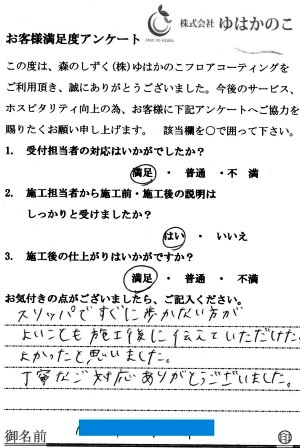 株式会社 ゆはかのこ
お客様満足度アンケート
この度は、森のしずく(株)ゆはかのこフロアコーティングを
ご利用頂き、誠にありがとうございました。今後のサービス、
ホスピタリティ向上の為、お客様に下記アンケートへご協力を
賜りたくお願い申し上げます。 該当欄を○で囲って下さい。
1. 受付担当者の対応はいかがでしたか？
満足 ・ 普通 ・ 不 満
2. 施工担当者から施工前・施工後の説明は
しっかりと受けましたか？
はい ・ いいえ
3. 施工後の仕上がりはいかがですか？
満足 ・ 普通 ・ 不満
お気付きの点がございましたら、ご記入ください。
スリッパですぐに歩かない方が
よいことも施工後に伝えていただけた
よかったと思いました。
丁寧なご対応ありがとうございました。
御名前
印